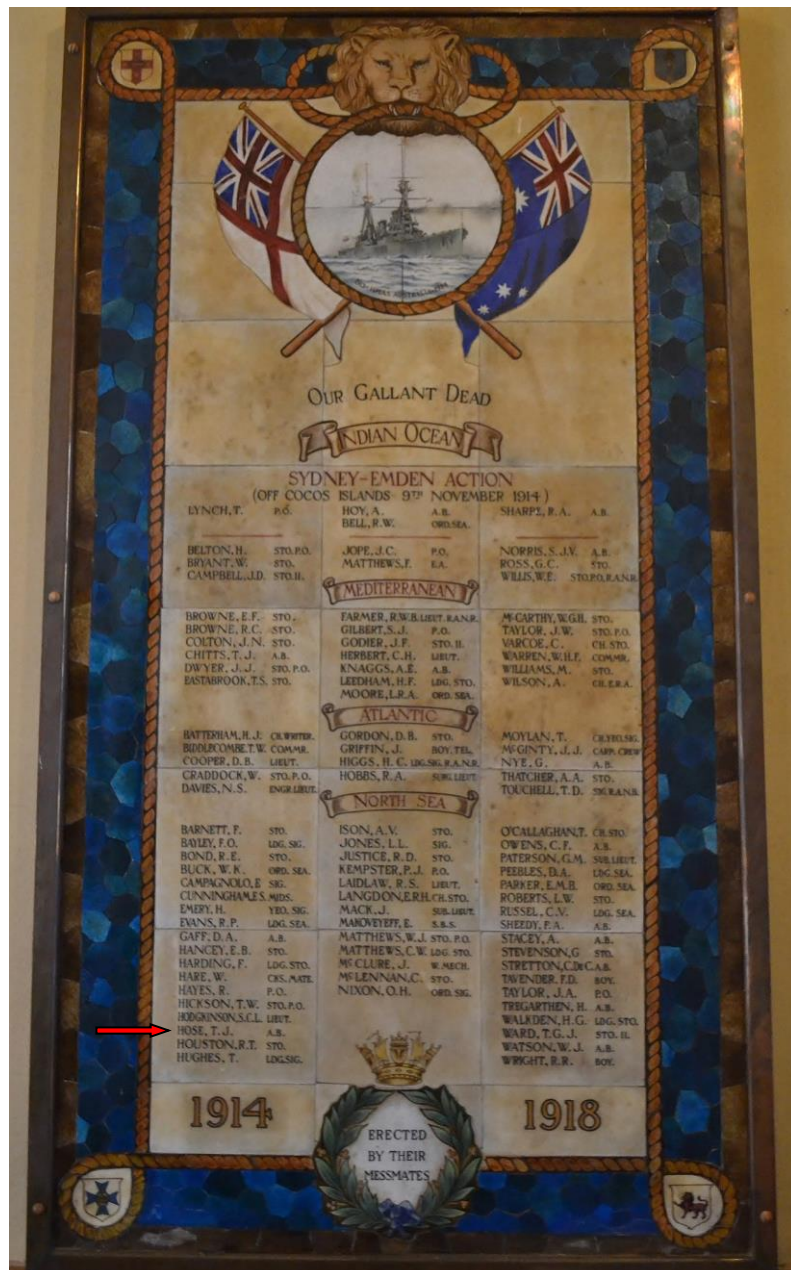 OUR GALLANT DEAD
INDIAN OCEAN
SYDNEY-EMDEN ACTION
(OFF COCOS ISLANDS 9TH NOVEMBER 1914)
LYNCH, T. P.O.
HOY, A. A.B.
BELL, R.W. ORD. SEA.
SHARPE, R.A. A.B.
BELTON, H. STO. P.O.
BRYANT, W. STO.
CAMPBELL, J.D. STO. II.
JOPE, J.C. P.O.
MATTHEWS, F. E.A.
NORRIS, S.J.V. A.B.
ROSS, G.C. STO.
WILLIS, W.E. STO. P.O. R.A.N.R.
MEDITERRANEAN
BROWNE, E.F. STO.
BROWNE, R.C. STO.
COLTON, J.N. STO.
CHITTS, T.J. A.B.
DWYER, J.J. STO. P.O.
EASTABROOK, T.S. STO.
FARMER, R.W.B. LIEUT. R.A.N.R.
GILBERT, S.J. P.O.
GODIER, J.F. STO. II.
HERBERT, C.H. LIEUT.
KNAGGS, A.E. A.B.
LEEDHAM, H.F. LDG. STO.
MOORE, L.R.A. ORD. SEA.
McCARTHY, W.G.H. STO.
TAYLOR, J.W. STO. P.O.
VARCOE, C. CH. STO.
WARREN, W.H.F. COMMR.
WILLIAMS, M. STO.
WILSON, A. CH. E.R.A.
ATLANTIC
BATTERHAM, H.J. CH. WRITER.
BIDDLECOMBE, T.W. COMMR.
COOPER, D.B. LIEUT.
CRADDOCK, W. STO. P.O.
DAVIES, N.S. ENGR. LIEUT.
GORDON, D.B. STO.
GRIFFIN, J. BOY. TEL.
HIGGS, H.C. LDG. SIG. R.A.N.R.
HOBBS, R.A. SURG. LIEUT.
MOYLAN, T. CH. YEO. SIG.
McGINTY, J.J. CARP. CREW
NYE, G. A.B.
THATCHER, A.A. STO.
TOUCHELL, T.D. SIG. R.A.N.B.
NORTH SEA
BARNETT, F. STO.
BAYLEY, F.O. LDG. SIG.
BOND, R.E. STO.
BUCK, W.K. ORD. SEA.
CAMPAGNOLO, E SIG.
CUNNINGHAM, E.S. MIDS.
EMERY, H. YEO. SIG.
EVANS, R.P. LDG. SEA.
GAFF, D.A. A.B.
HANCEY, E.B. STO.
HARDING, F. LDG. STO.
HARE, W. CKS. MATE.
HAYES, R. P.O.
HICKSON, T.W. STO. P.O.
HODGKINSON, S.C.L. LIEUT.
HOSE, T.J. A.B.
HOUSTON, R.T. STO.
HUGHES, T. LDG. SIG.
ISON, A.V. STO.
JONES, L.L. SIG.
JUSTICE, R.D. STO.
KEMPSTER, P.J. P.O.
LAIDLAW, R.S. LIEUT.
LANGDON, E.R.H. CH. STO.
MACK, J. SUB. LIEUT.
MAHOVEYEFF, E. S.B.S.
MATTHEWS, W.J. STO. P.O.
MATTHEWS, C.W. LDG. STO.
McCLURE, J. W. MECH.
McLENNAN, C. STO.
NIXON, O.H. ORD. SIG.
O'CALLAGHAN, T. CH. STO.
OWENS, C.F. A.B.
PATERSON, G.M. SUB. LIEUT.
PEEBLES, D.A. LDG. SEA.
PARKER, E.M.B. ORD. SEA.
ROBERTS, L.W. STO.
RUSSEL, C.V. LDG. SEA.
SHEEDY, F.A. A.B.
STACEY, A. A.B.
STEVENSON, G STO.
STRETTON, C. De C. A.B.
TAVENDER, F.D. BOY.
TAYLOR, J.A. P.O.
TREGARTHEN, H. A.B.
WALKDEN, H.G. LDG. STO.
WARD, T.G.J. STO. II.
WATSON, W.J. A.B.
WRIGHT, R.R. BOY.
1914
1918
ERECTED
BY THEIR
MESSMATES